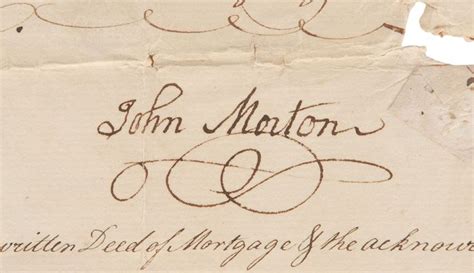 John Morton
written Deed of Mortgage & the acknow